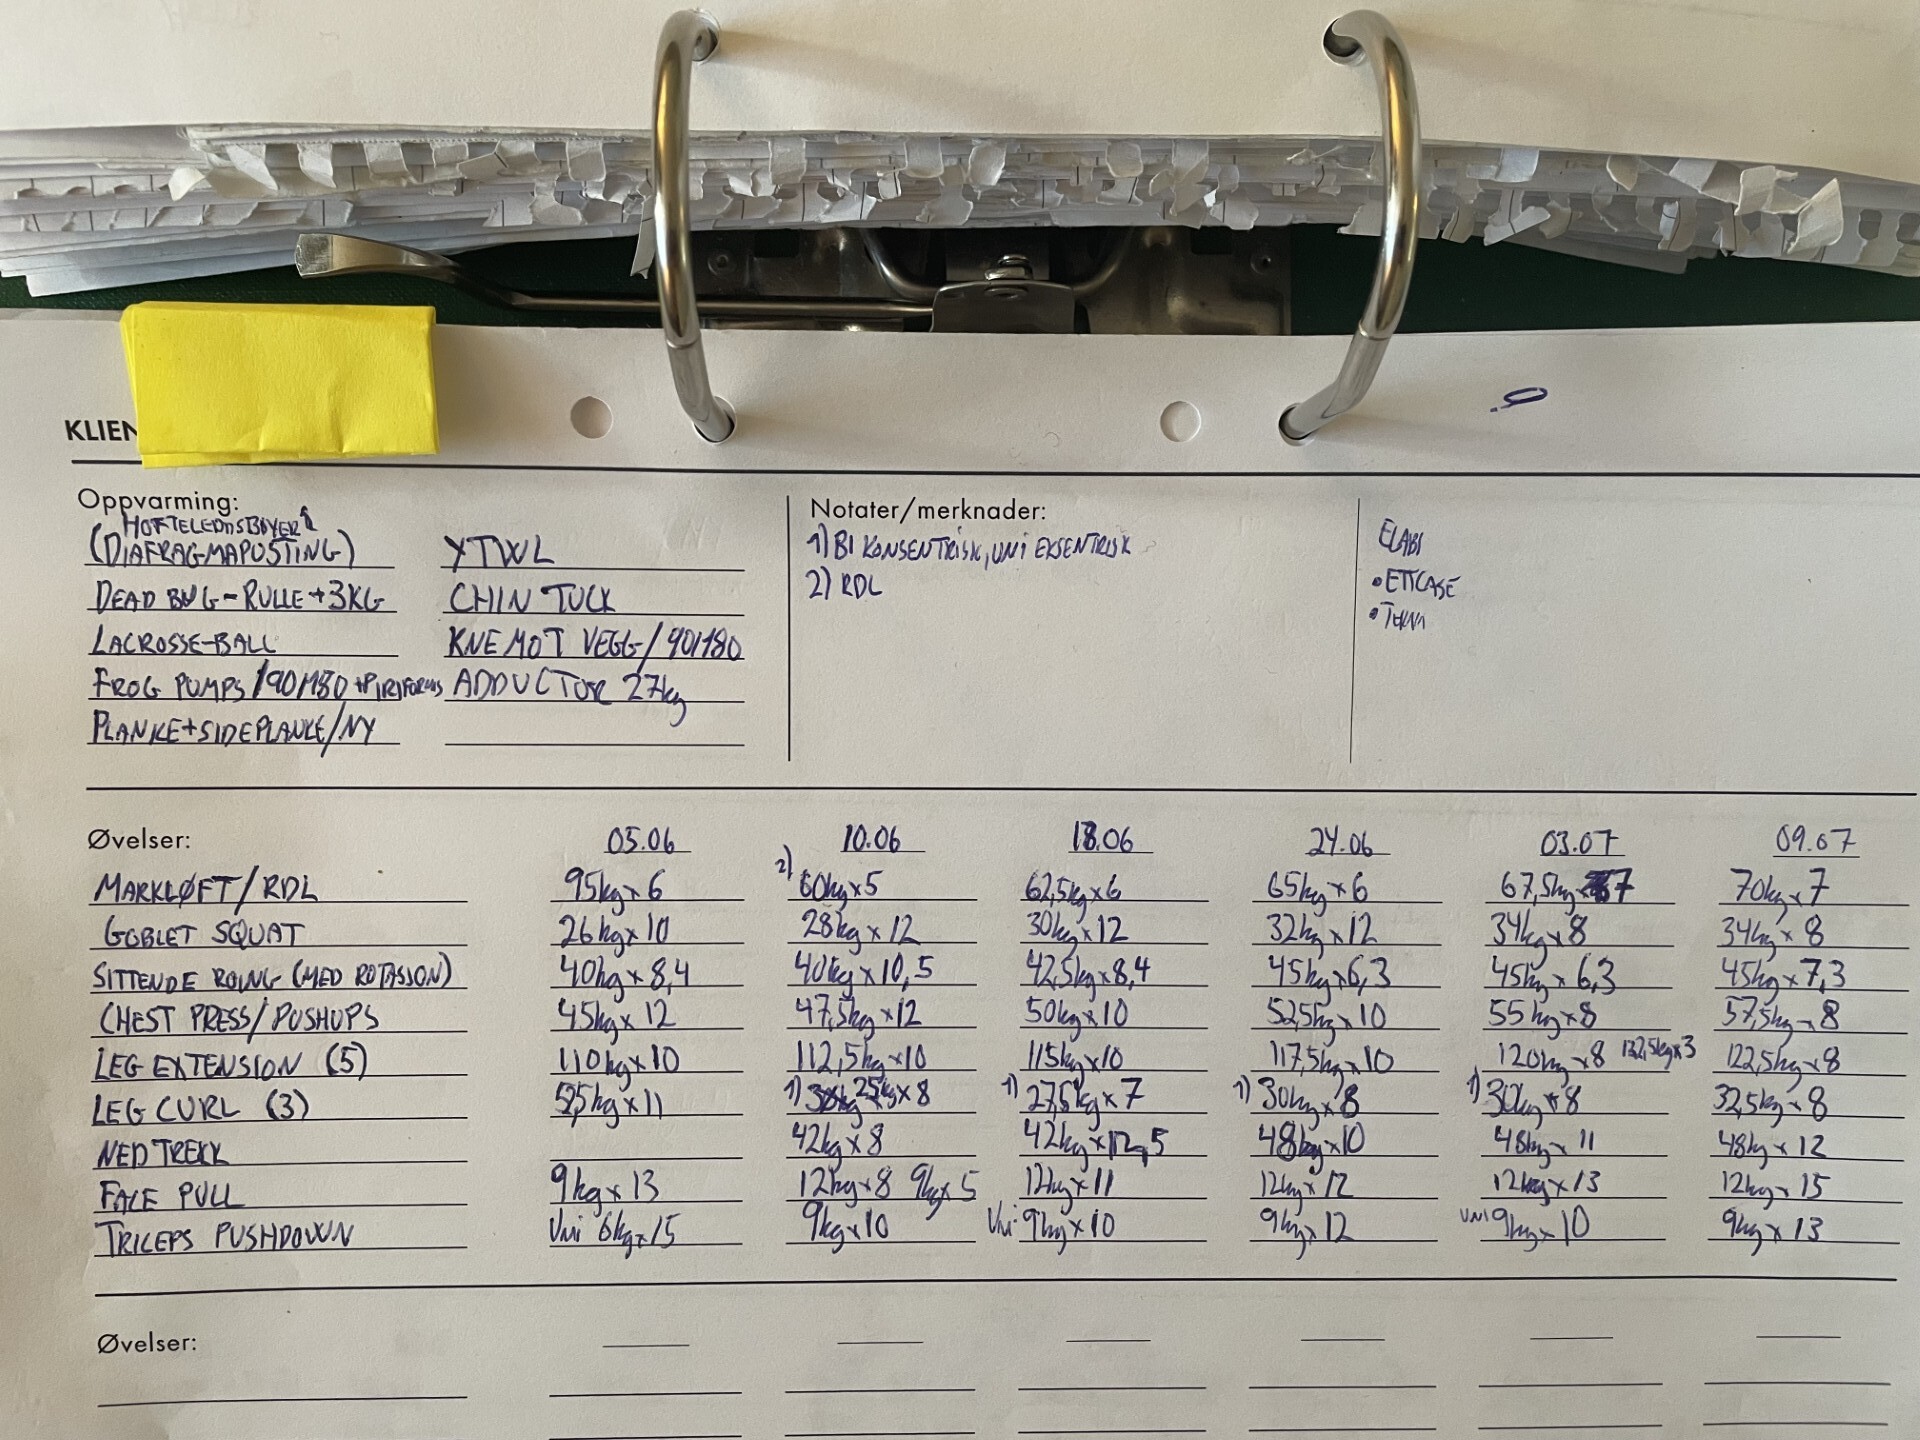 KLIEN
Oppvarming:
HOFTELEDDSBØYER
(DIAFRAGMAPUSTING)
DEAD BUG-RULLE+3KG
LACROSSE-BALL
FROG PUMPS/90/180+PIRIFORMIS
PLANKE+SIDEPLANKE/NY
YTWL
CHIN TUCK
KNE MOT VEGG/90/180
ADDUCTOR 27kg
Notater/merknader:
1) BI KONSENTRISK, UNI EKSENTRISK
2) RDL
•ETTCASE
Øvelser: 05.06 10.06 18.06 24.06 03.07 09.07
MARKLØFT/RDL 95kg x 6 2) 60kg x 5 62,5kg x 6 65kg x 6 67,5kg x 7 70kg x 7
GOBLET SQUAT 26kg x 10 28kg x 12 30kg x 12 32kg x 12 34kg x 8 34kg x 8
SITTENDE ROING (MED ROTASJON) 40kg x 8,4 40kg x 10,5 42,5kg x 8,4 45kg x 6,3 45kg x 6,3 45kg x 7,3
CHEST PRESS/PUSHUPS 45kg x 12 47,5kg x 12 50kg x 10 52,5kg x 10 55kg x 8 57,5kg x 8
LEG EXTENSION (5) 110kg x 10 112,5kg x 10 115kg x 10 117,5kg x 10 120kg x 8 132,5kg x 3 122,5kg x 8
LEG CURL (3) 52,5kg x 11 1) 25kg x 8 1) 27,5kg x 7 1) 30kg x 8 1) 30kg x 8 32,5kg x 8
NEDTREKK 42kg x 8 42kg x 12,5 48kg x 10 48kg x 11 48kg x 12
FACE PULL 9kg x 13 12kg x 8 9kg x 5 12kg x 11 12kg x 12 12kg x 13 12kg x 15
TRICEPS PUSHDOWN Uni 6kg x 15 9kg x 10 Uni: 9kg x 10 9kg x 12 UNI 9kg x 10 9kg x 13
Øvelser: